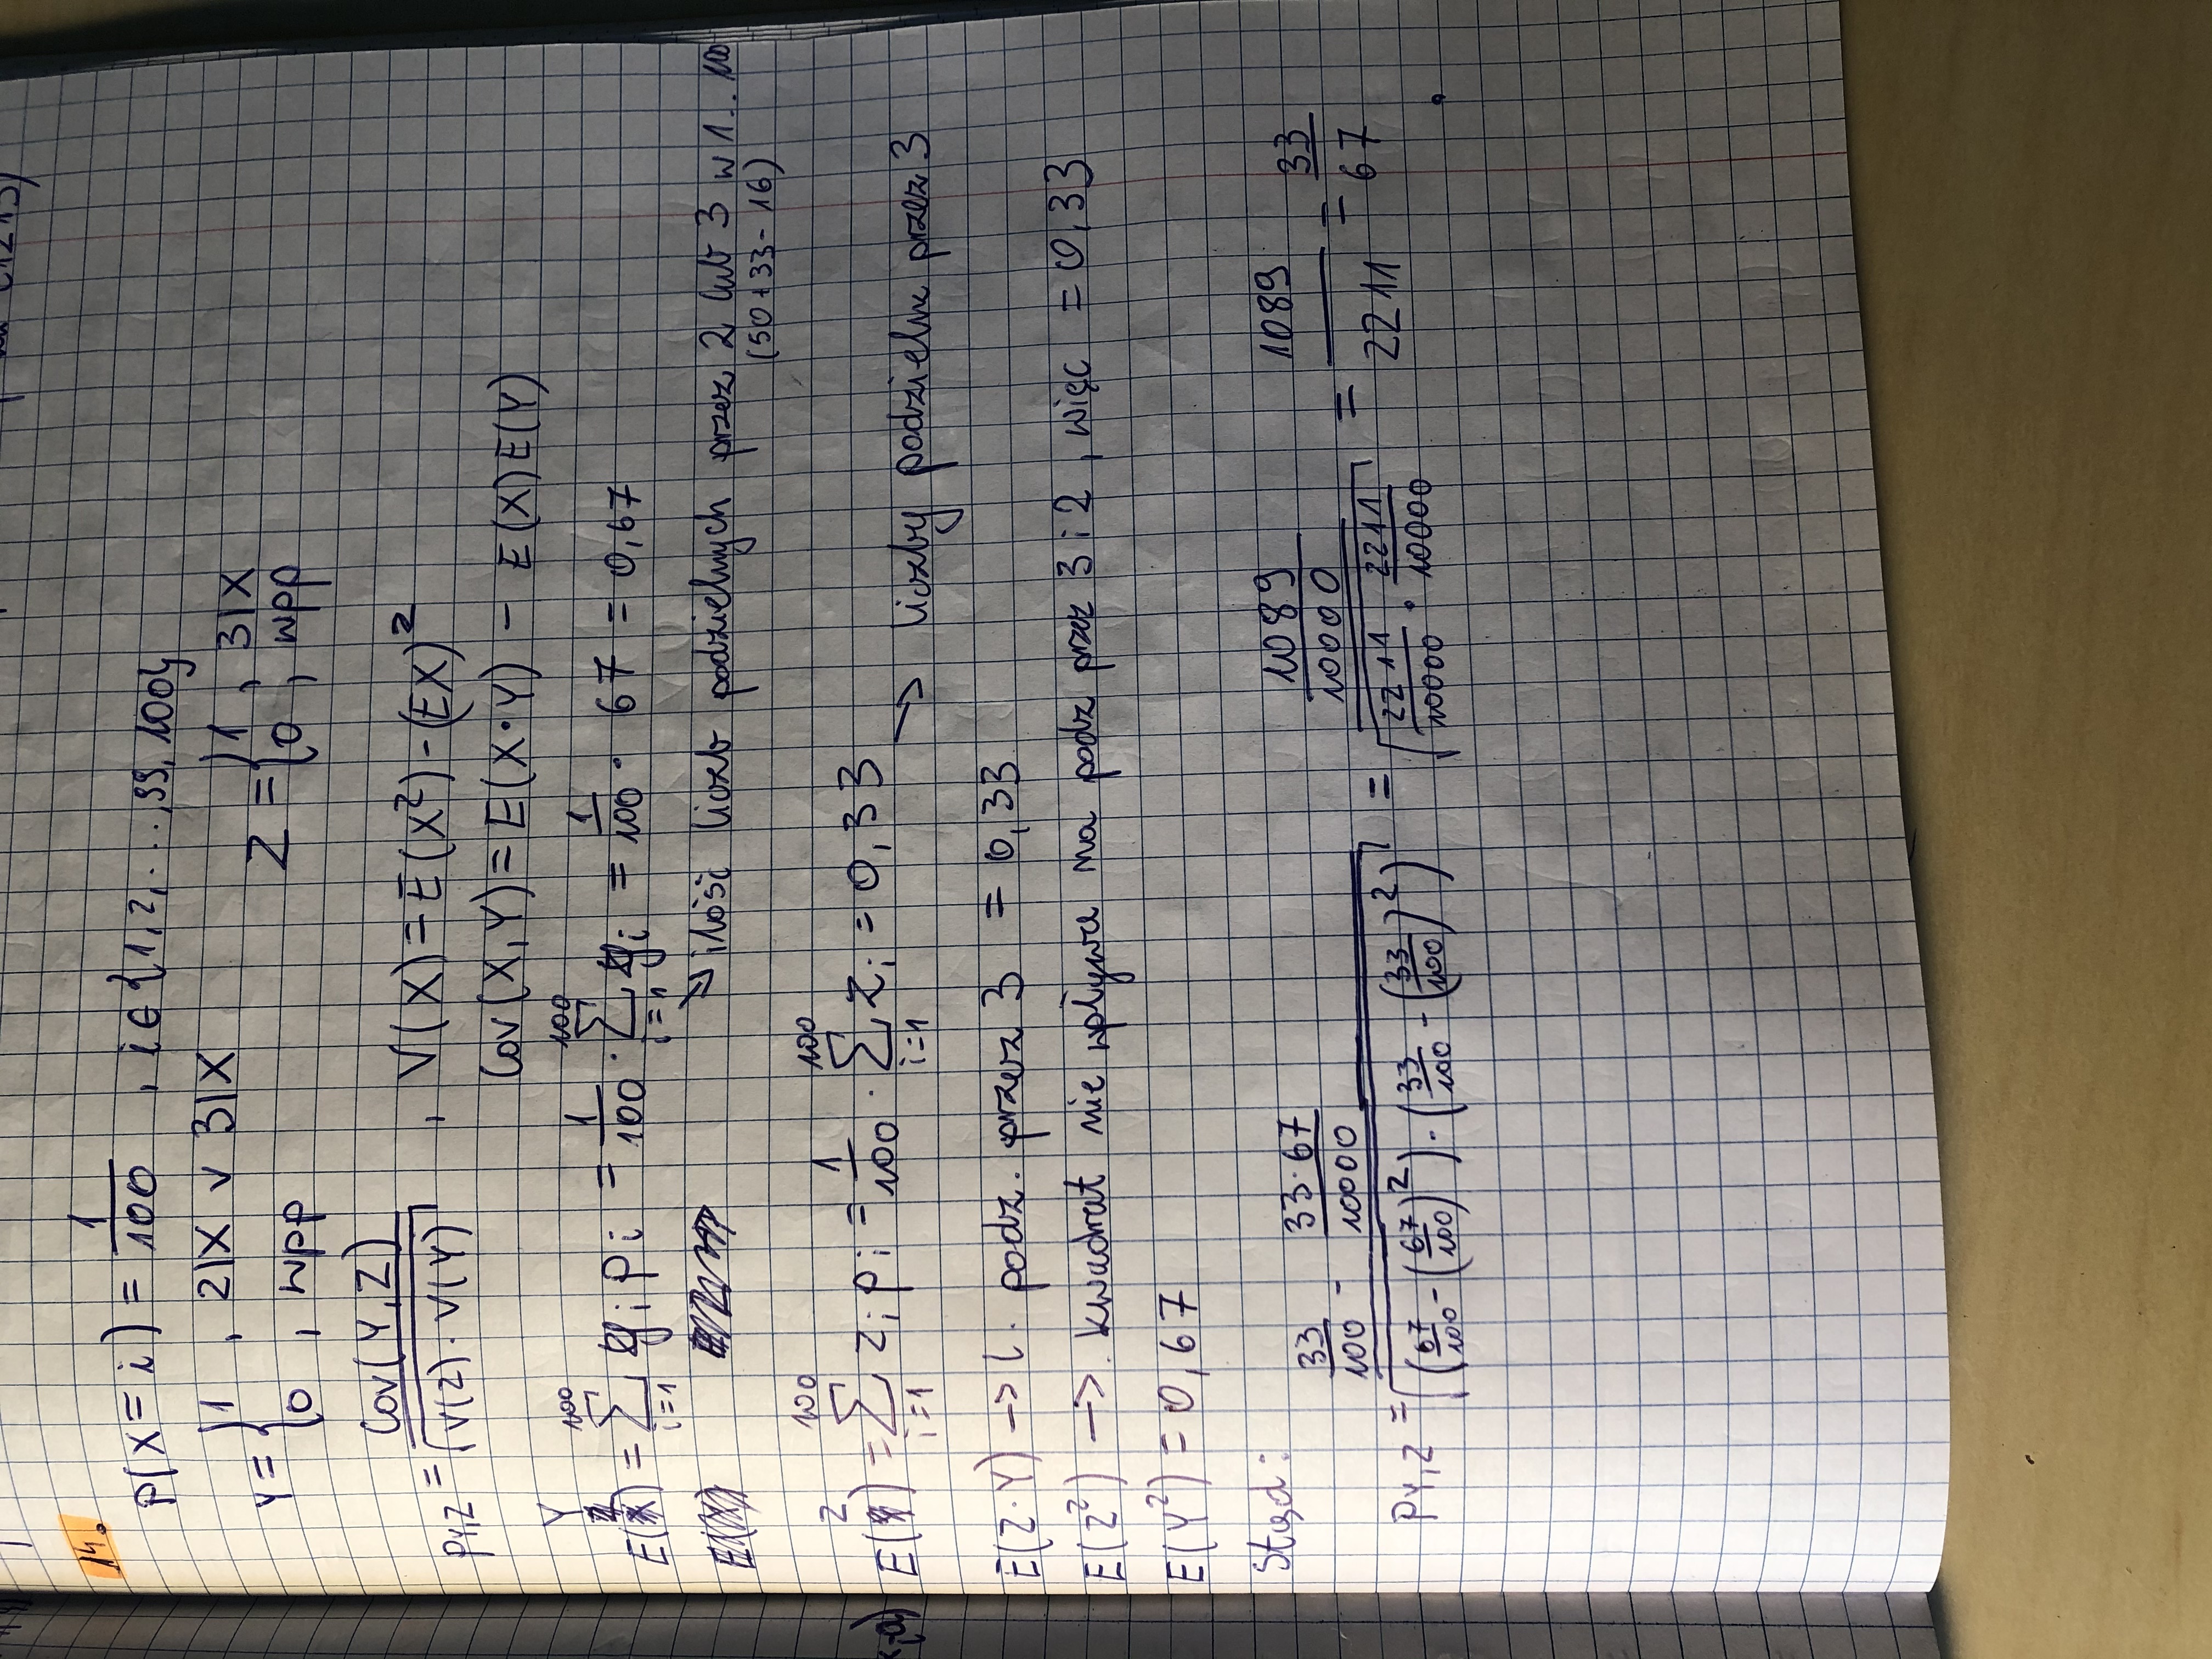 14.
P(X=i) = 1/100 , i∈{1,2,...,99,100}
Y = {1 , 2|X ∨ 3|X
0 , wpp
Z = {1 , 3|X
0 , wpp
ρY,Z = Cov(Y,Z) / √(V(Z)·V(Y)) , V(X) = E(X²) - (EX)²
Cov(X,Y) = E(X·Y) - E(X)E(Y)
E(Y) = Σ_{i=1}^{100} y_i p_i = 1/100 · Σ_{i=1}^{100} y_i = 1/100 · 67 = 0,67
↘ ilość liczb podzielnych przez 2 lub 3 w 1..100
(50+33-16)
E(Z) = Σ_{i=1}^{100} z_i p_i = 1/100 · Σ_{i=1}^{100} z_i = 0,33
→ liczby podzielne przez 3
E(Z·Y) -> l. podz. przez 3 = 0,33
E(Z²) -> kwadrat nie wpływa na podz przez 3 i 2, więc = 0,33
E(Y²) = 0,67
Stąd:
ρY,Z = (33/100 - 33·67/10000) / √((67/100 - (67/100)²)·(33/100 - (33/100)²)) = (1089/10000) / √(2211/10000 · 2211/10000) = 1089/2211 = 33/67